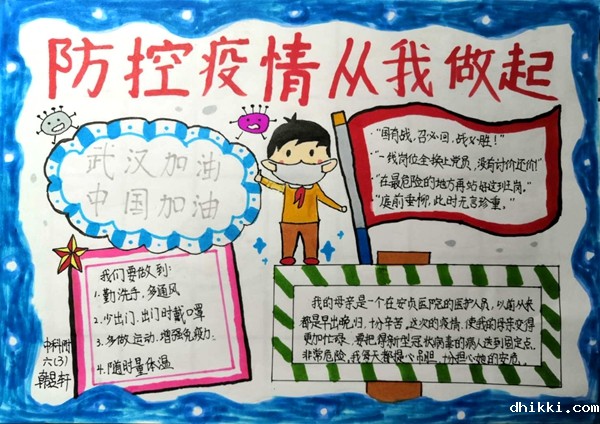 防控疫情从我做起
武汉加油
中国加油
"国有战,召必回,战必胜!"
"一线岗位全换上党员,没有讨价还价!"
"在最危险的地方再站好这班岗。"
"庭前垂柳,此时无言珍重。"
我们要做到:
1.勤洗手、多通风
2.少出门、出门时戴口罩
3.多做运动、增强免疫力
4.随时量体温
中科附
六(3)
韩旻轩
我的母亲是一个在安贞医院的医护人员,以前从来
都是早出晚归,十分辛苦,这次的疫情,使我的母亲变得
更加忙碌,要把得新型冠状病毒的病人送到固定点,
非常危险,我每天都提心吊胆,十分担心她的安危。
dhikki.com